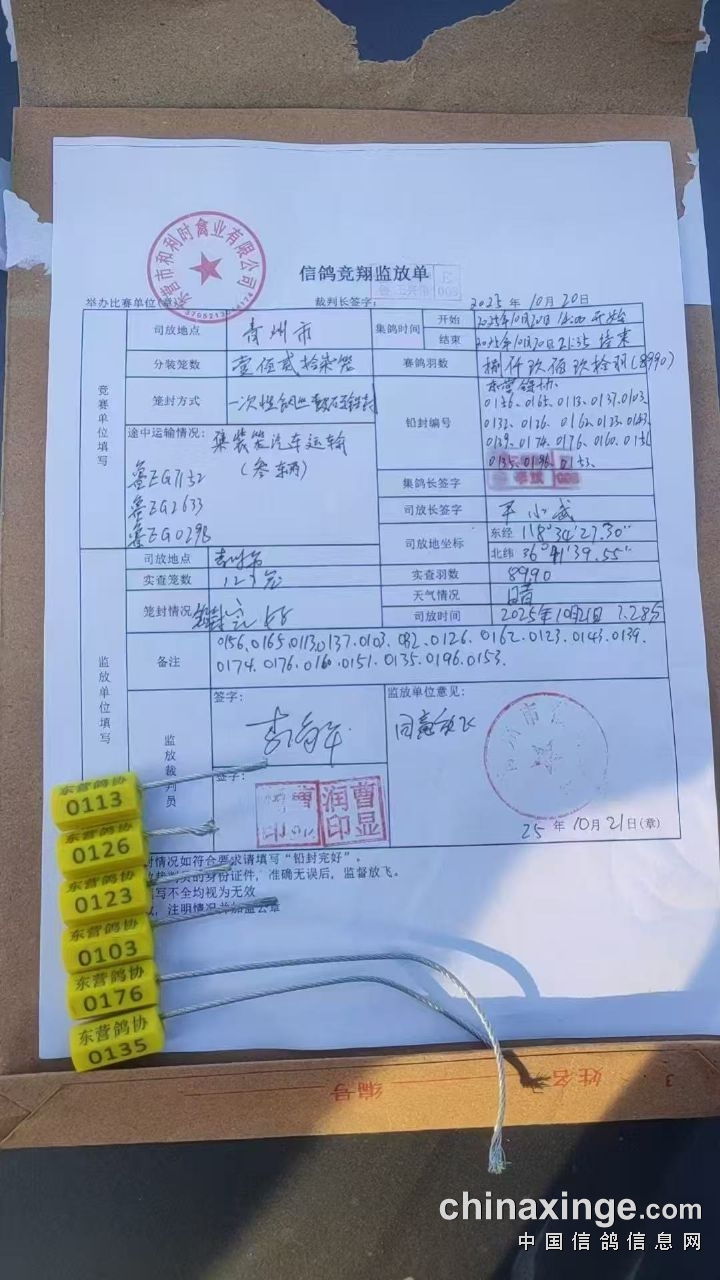 东营市和利时禽业有限公司
信鸽竞翔监放单
举办比赛单位(章): 裁判长签字: 2025年10月20日
竞赛单位填写
司放地点 青州市 集鸽时间 开始 2025年10月20日 14:00 开始
结束 2025年10月20日 21:35 结束
分装笼数 壹佰贰拾柒笼 赛鸽羽数 捌仟玖佰玖拾羽(8990)
笼封方式 铅封编号 东营鸽协
0156. 0165. 0113. 0137. 0103.
0132. 0126. 0162. 0123. 0143.
0139. 0174. 0176. 0160. 0151
0135. 0196. 0153.
途中运输情况: 集装笼汽车运输
(叁辆)
鲁EG7152
鲁EG2633
鲁EG0298
集鸽长签字
司放长签字
司放地坐标 东经 118°34′27.30″
北纬 36°41′39.55″
监放单位填写
司放地点 青州市
实查笼数 127笼 实查羽数 8990
笼封情况 天气情况 晴
司放时间 2025年10月21日 7.28分
备注 0156.0165.0113.0137.0103. 0132.0126. 0162.0123.0143.0139.
0174.0176.0160.0151.0135.0196.0153.
监放裁判员
签字: 监放单位意见:
同意放飞
签字:
曹显润印
25年10月21日(章)
封情况如符合要求请填写“铅封完好”。
裁判员的身份证件，准确无误后，监督放飞。
写不全均视为无效
，注明情况并加盖公章
东营鸽协
0113
东营鸽协
0126
东营鸽协
0123
东营鸽协
0103
东营鸽协
0176
东营鸽协
0135
姓名
编号
chinaxinge.com
中国信鸽信息网